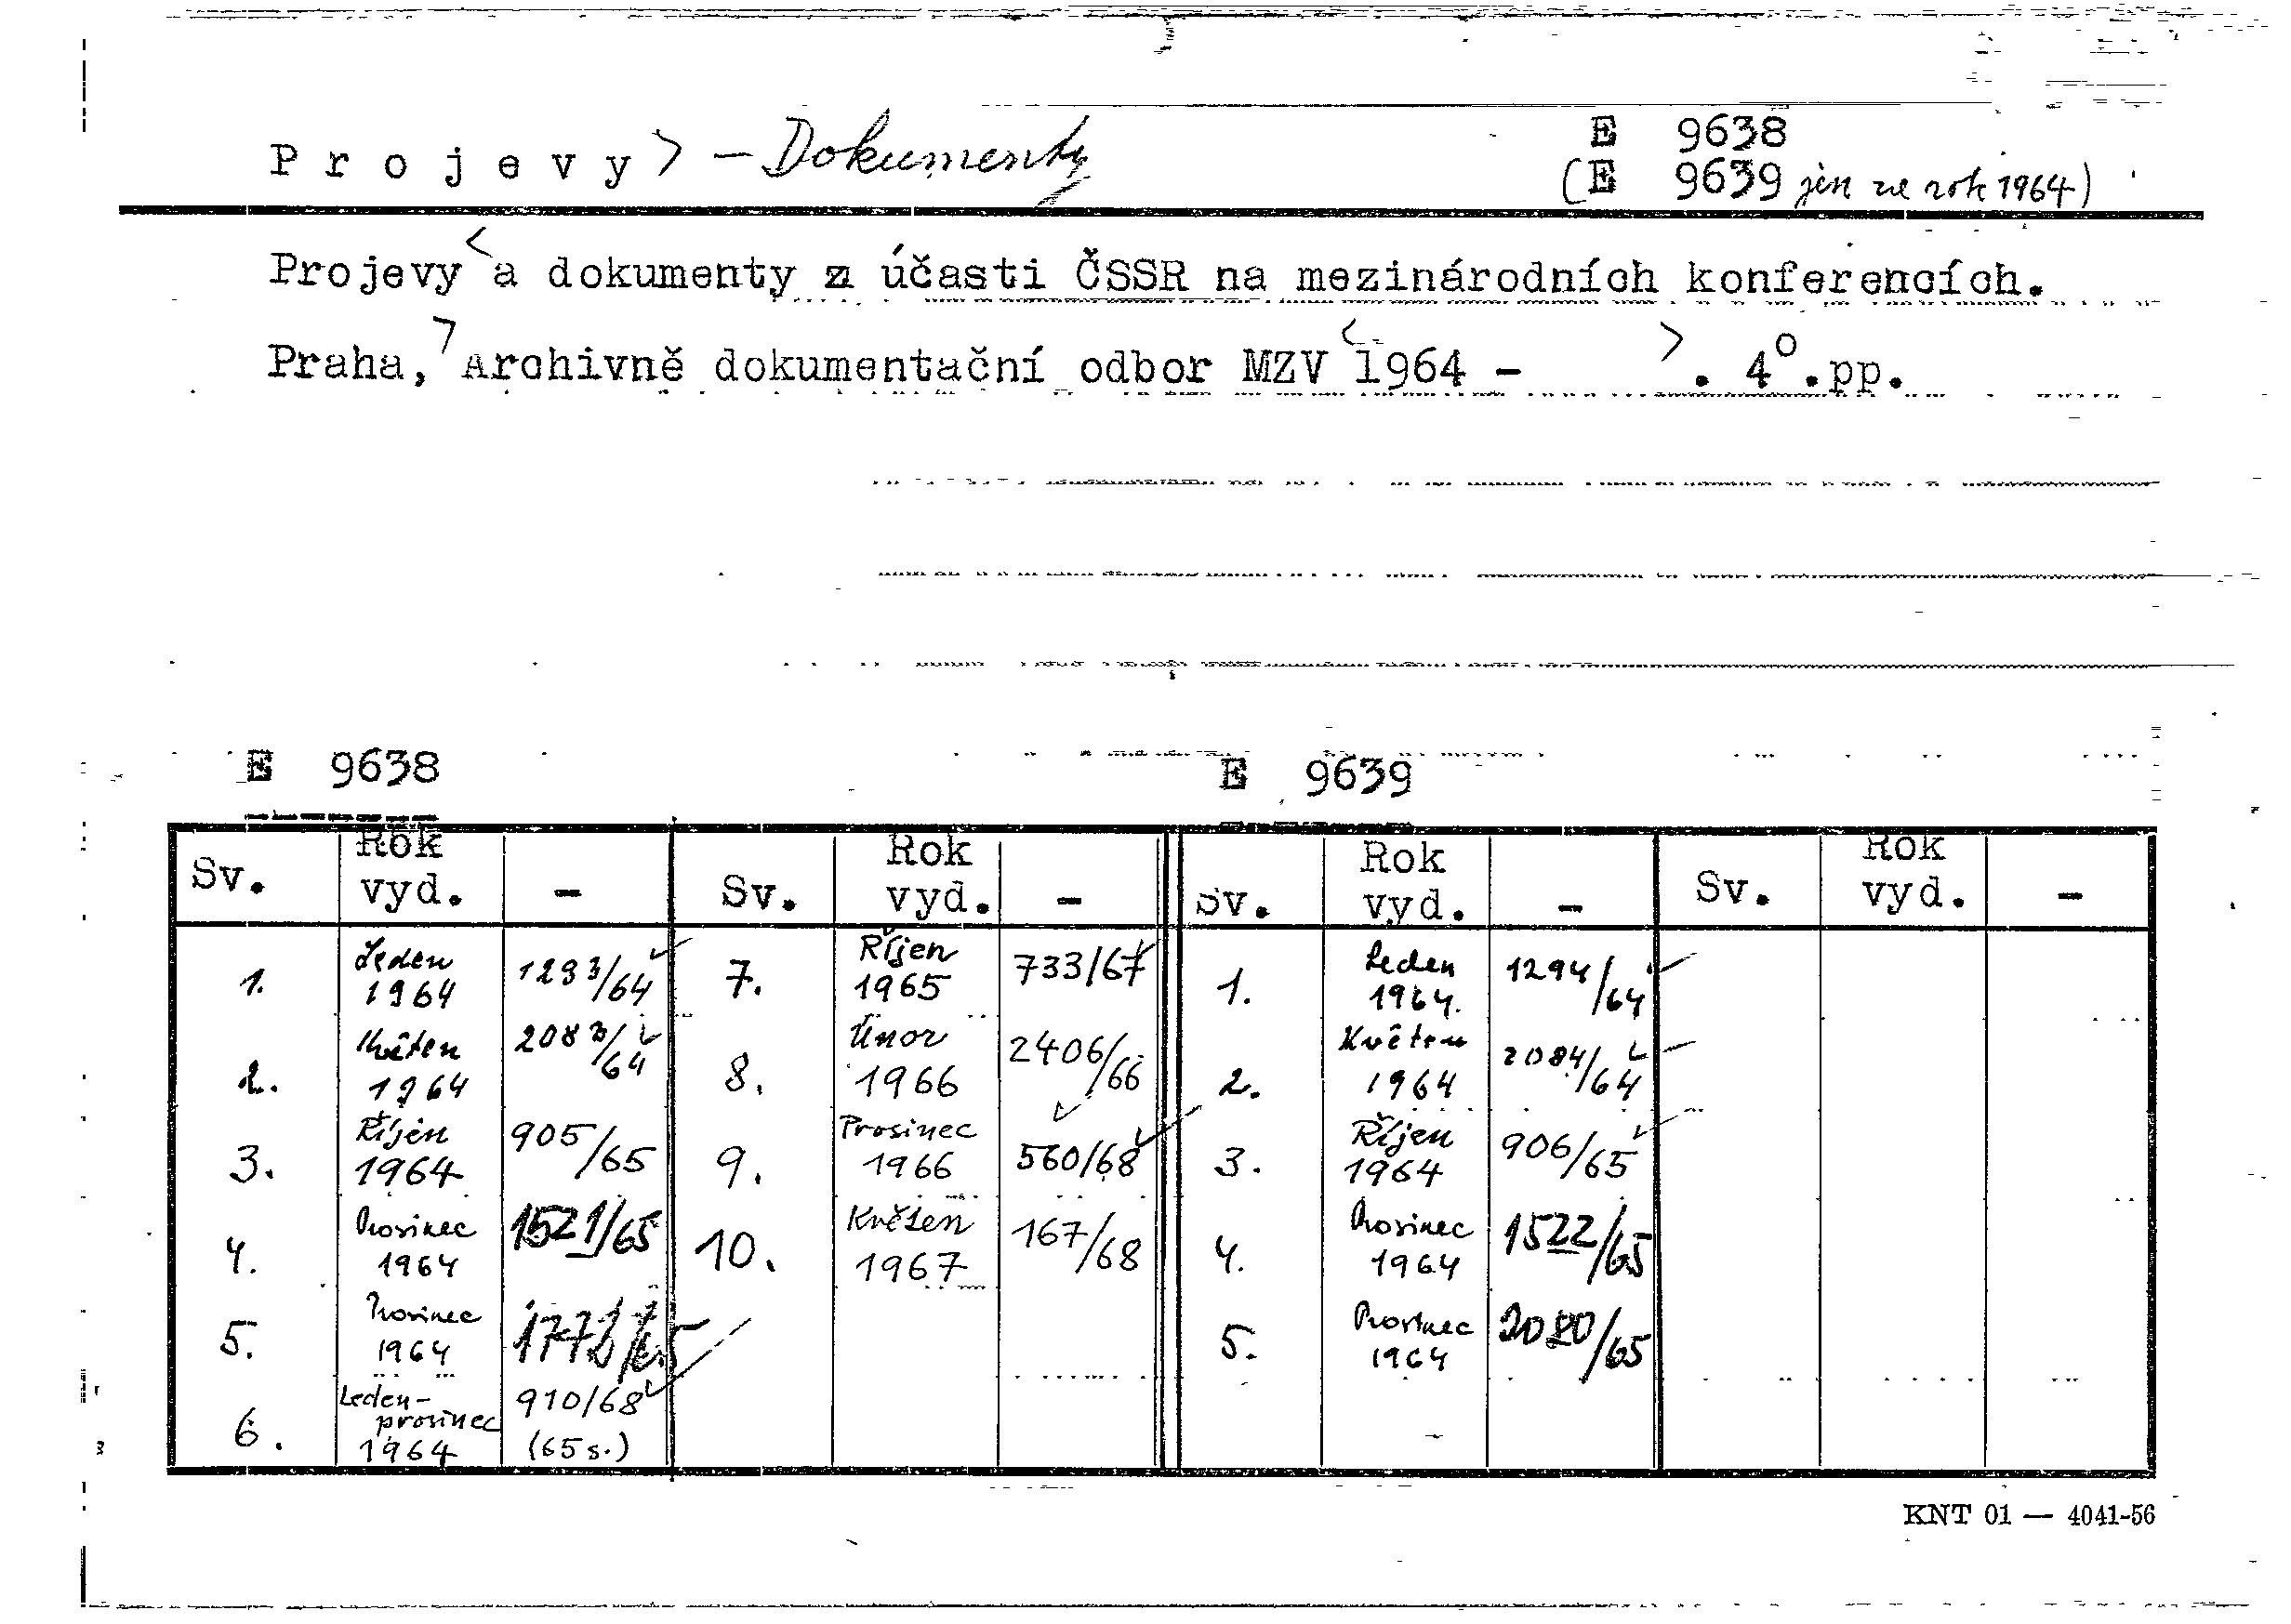 Projevy> - Dokumenty
E 9638
(E 9639 jen ze rok 1964)
Projevy <a dokumenty z účasti ČSSR na mezinárodních konferencích.
Praha,> Archivně dokumentační odbor MZV <1964 - >. 4°.pp.
E 9638
E 9639
Sv. Rok vyd. - Sv. Rok vyd. - Sv. Rok vyd. - Sv. Rok vyd. -
1. Leden 1964 1293/64 7. Říjen 1965 733/67 1. Leden 1964. 1294/64
2. Květen 1964 2083/64 8. Únor 1966 2406/66 2. Květen 1964 2084/64
3. Říjen 1964 905/65 9. Prosinec 1966 560/68 3. Říjen 1964 906/65
4. Prosinec 1964 1521/65 10. Květen 1967 167/68 4. Prosinec 1964 1522/65
5. Prosinec 1964 5. Prosinec 1964 2020/65
6. Leden-prosinec 1964 910/68 (65 s.)
KNT 01 — 4041-56